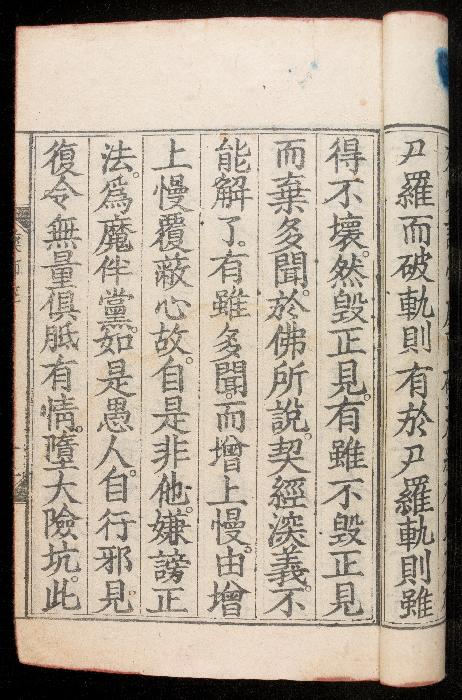 尸羅而破軌則有於尸羅軌則雖
得不壞。然毀正見。有雖不毀正見
而棄多聞。於佛所說。契經深義。不
能解了。有雖多聞。而增上慢。由增
上慢覆蔽心故。自是非他。嫌謗正
法。為魔伴黨。如是愚人。自行邪見。
復令無量俱胝有情。墮大險坑。此